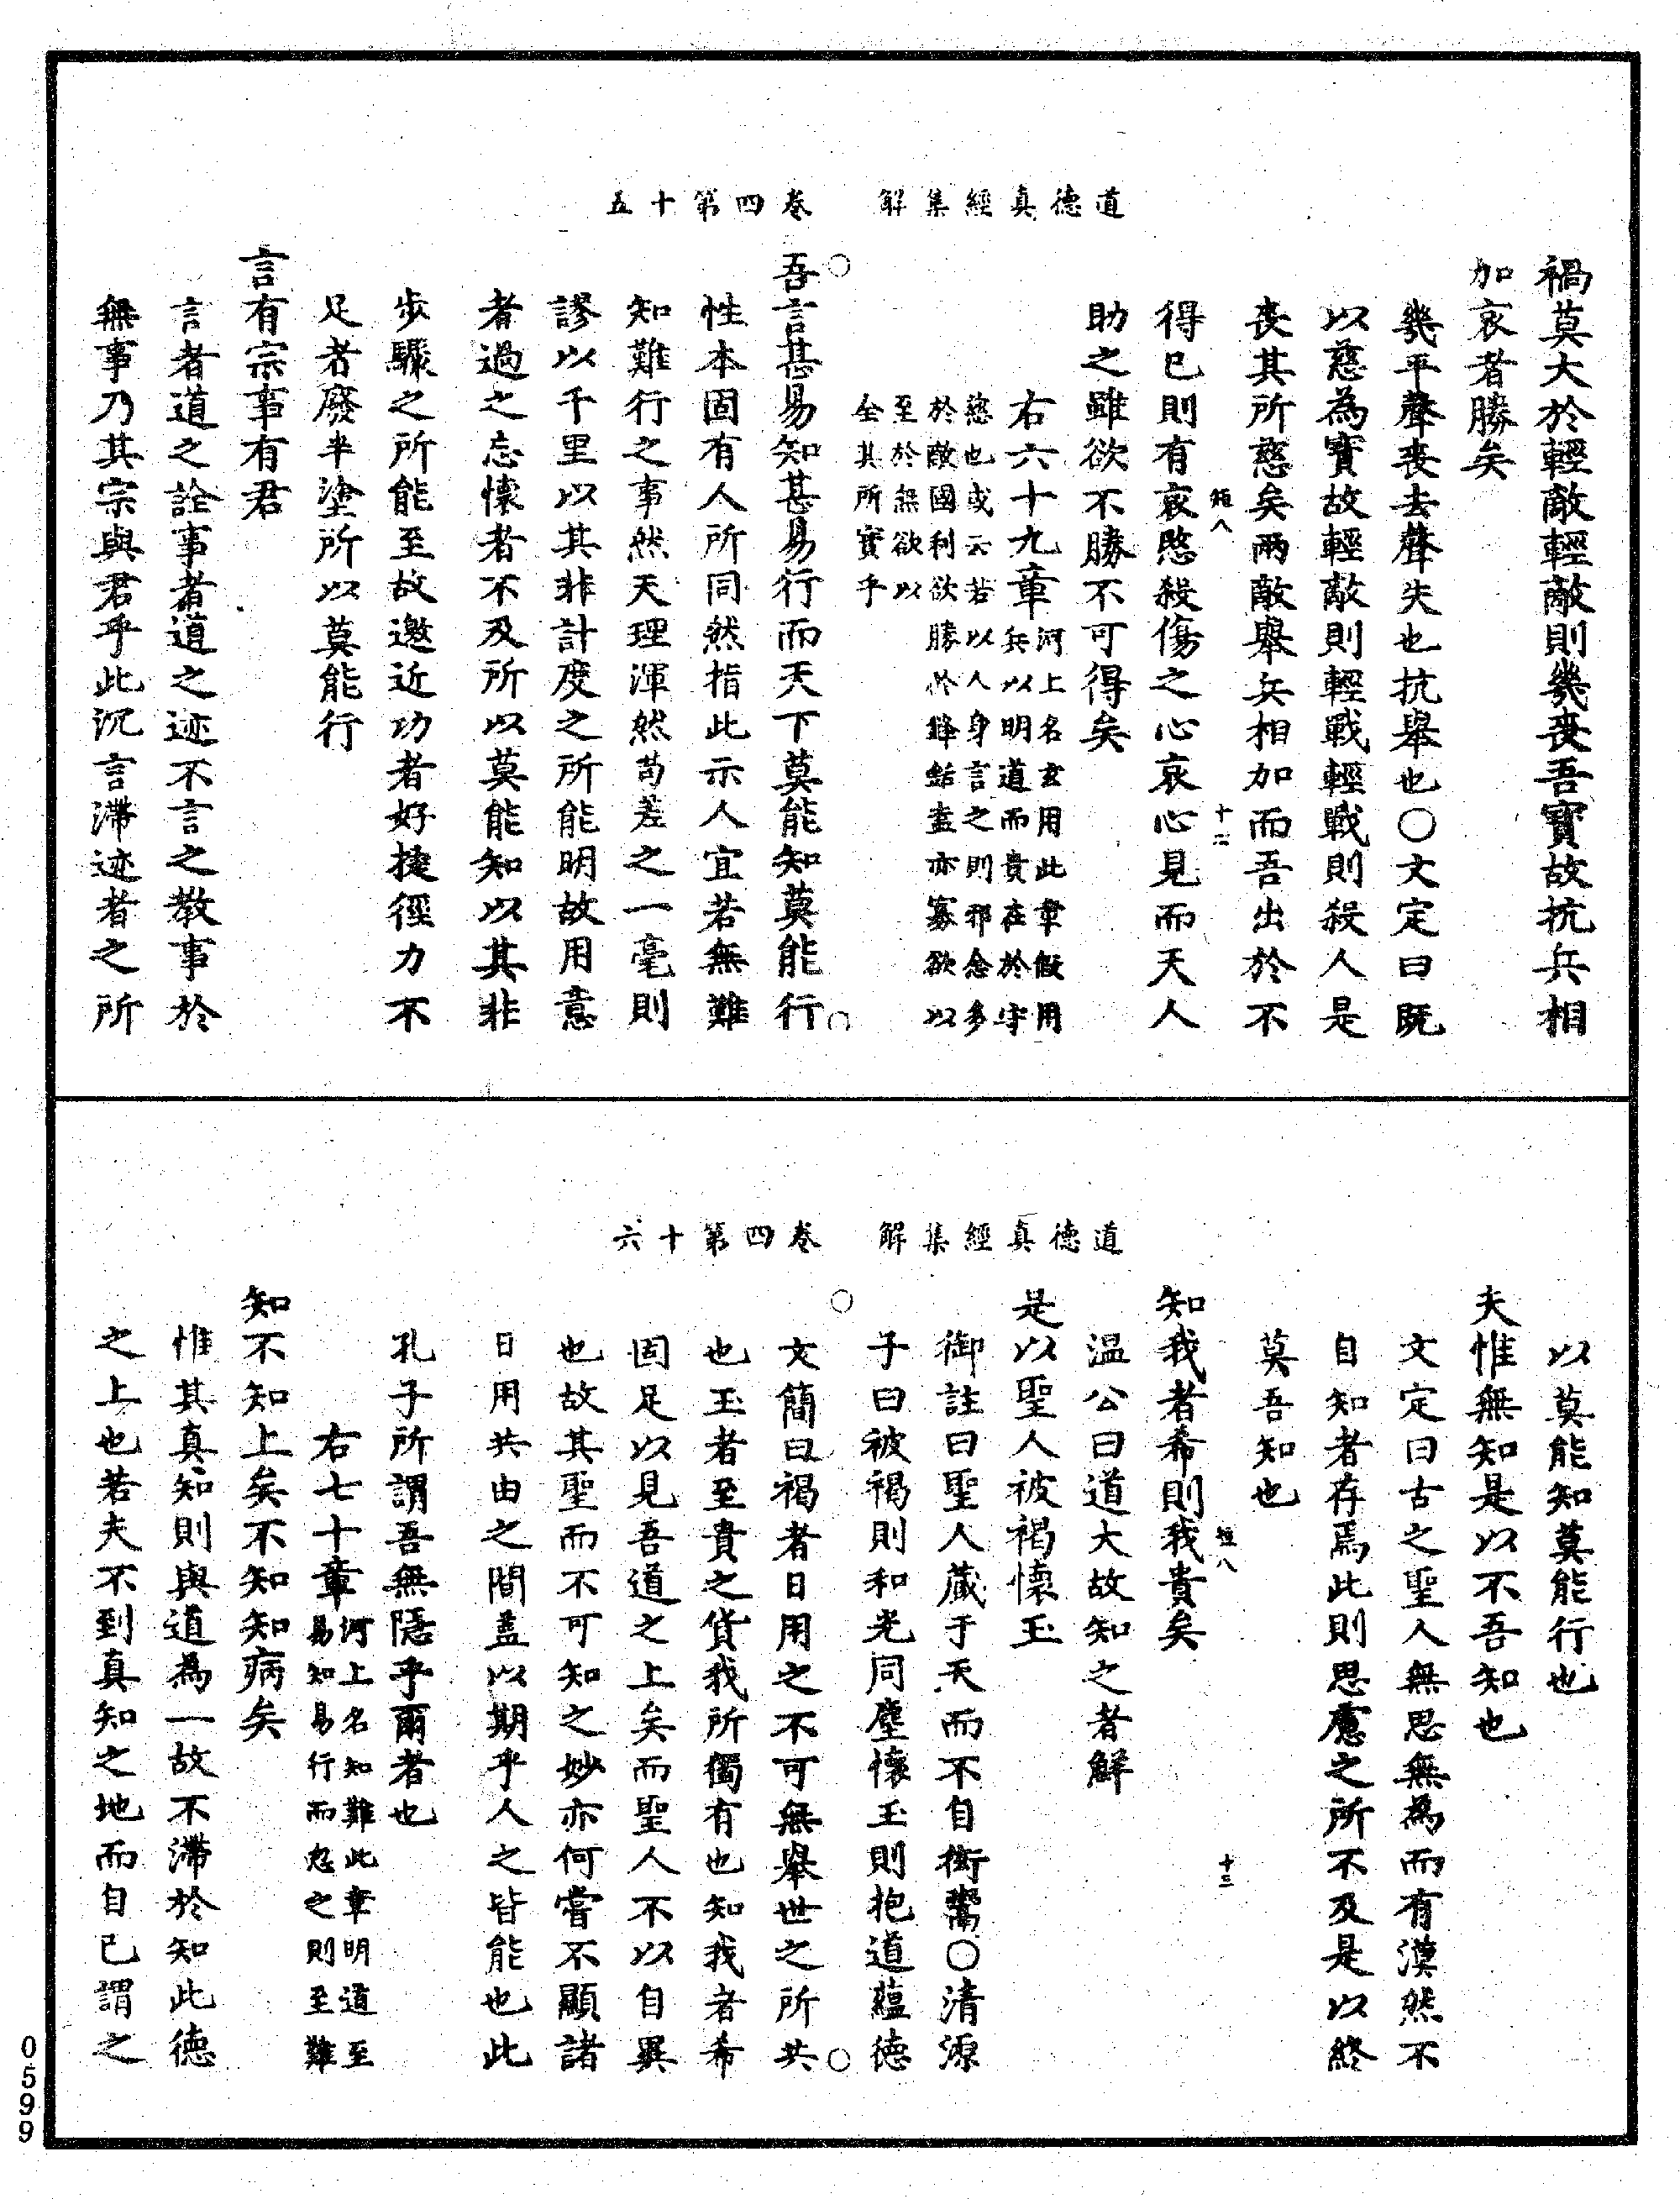 道德真經集解　卷四第十五
禍莫大於輕敵輕敵則幾喪吾寶故抗兵相
加哀者勝矣
幾平聲喪去聲失也抗舉也〇文定曰既
以慈為寶故輕敵則輕戰輕戰則殺人是
喪其所慈矣兩敵舉兵相加而吾出於不
短八　十二
得已則有哀愍殺傷之心哀心見而天人
助之雖欲不勝不可得矣
右六十九章河上名玄用此章假用
兵以明道而貴在於守
慈也或云若以人身言之則邪念多
於敵國利欲勝於鋒銛盍亦寡欲以
至於無欲以
全其所寶乎
吾言甚易知甚易行而天下莫能知莫能行
性本固有人所同然指此示人宜若無難
知難行之事然天理渾然苟差之一毫則
謬以千里以其非計度之所能明故用意
者過之忘懷者不及所以莫能知以其非
步驟之所能至故邀近功者好捷徑力不
足者廢半塗所以莫能行
言有宗事有君
言者道之詮事者道之迹不言之教事於
無事乃其宗與君乎此沉言滯迹者之所
道德真經集解　卷四第十六
以莫能知莫能行也
夫惟無知是以不吾知也
文定曰古之聖人無思無為而有漠然不
自知者存焉此則思慮之所不及是以終
莫吾知也
短八　十三
知我者希則我貴矣
温公曰道大故知之者鮮
是以聖人被褐懷玉
御註曰聖人藏于天而不自衒鬻〇清源
子曰被褐則和光同塵懷玉則抱道蘊德
文簡曰褐者日用之不可無舉世之所共
也玉者至貴之貨我所獨有也知我者希
固足以見吾道之上矣而聖人不以自異
也故其聖而不可知之妙亦何嘗不顯諸
日用共由之間蓋以期乎人之皆能也此
孔子所謂吾無隱乎爾者也
右七十章河上名知難此章明道至
易知易行而忽之則至難
知不知上矣不知知病矣
惟其真知則與道為一故不滯於知此德
之上也若夫不到真知之地而自已謂之
0599